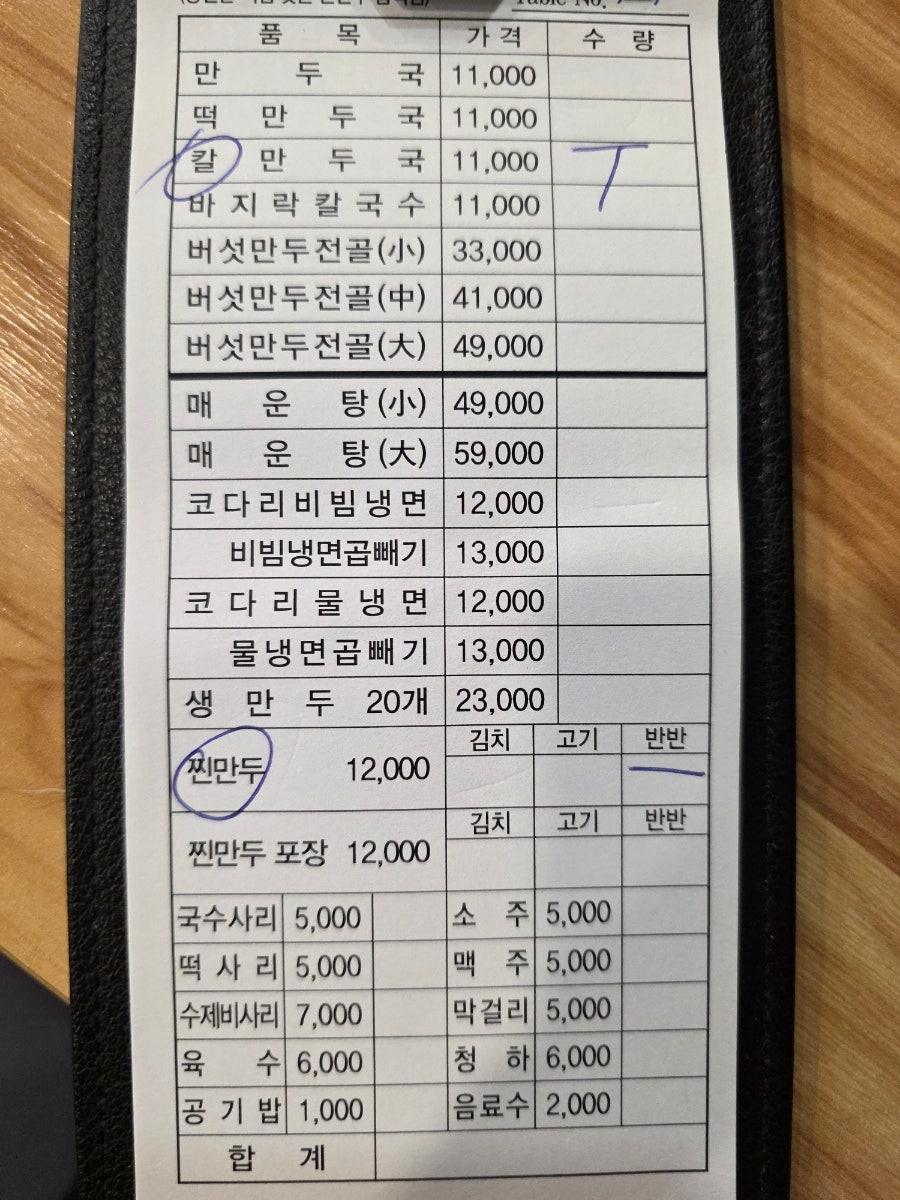 Table No.
품 목 가 격 수 량
만 두 국 11,000
떡 만 두 국 11,000
칼 만 두 국 11,000 T
바 지 락 칼 국 수 11,000
버섯만두전골(小) 33,000
버섯만두전골(中) 41,000
버섯만두전골(大) 49,000
매 운 탕 (小) 49,000
매 운 탕 (大) 59,000
코다리비빔냉면 12,000
비빔냉면곱빼기 13,000
코 다 리 물 냉 면 12,000
물냉면곱빼기 13,000
생 만 두 20개 23,000
찐만두 12,000 김치 고기 반반
찐만두 포장 12,000 김치 고기 반반
국수사리 5,000 소 주 5,000
떡 사 리 5,000 맥 주 5,000
수제비사리 7,000 막걸리 5,000
육 수 6,000 청 하 6,000
공 기 밥 1,000 음료수 2,000
합 계